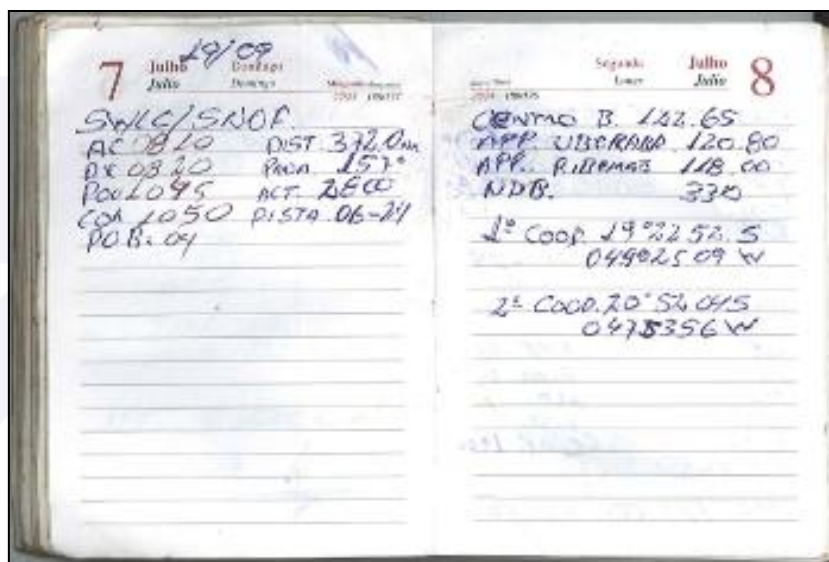 7 Julho Domingo
Julio Domingo
19/09
SWLC/SNOP
AC 0810 DIST 372.0 NM
DE 0820 PROA 157°
POU 1045 ACT. 2800
COR 1050 PISTA 06-24
POB: 04
Segunda Julho 8
Lunes Julio
CENTRO B. 122.65
APP. UBERABA 120.80
APP. RIBEIRÃO 118.00
NDB. 330
1º COOR. 19°22 52. S
049°25 09 W
2ª COOD. 20°52 04 S
047 53 56 W